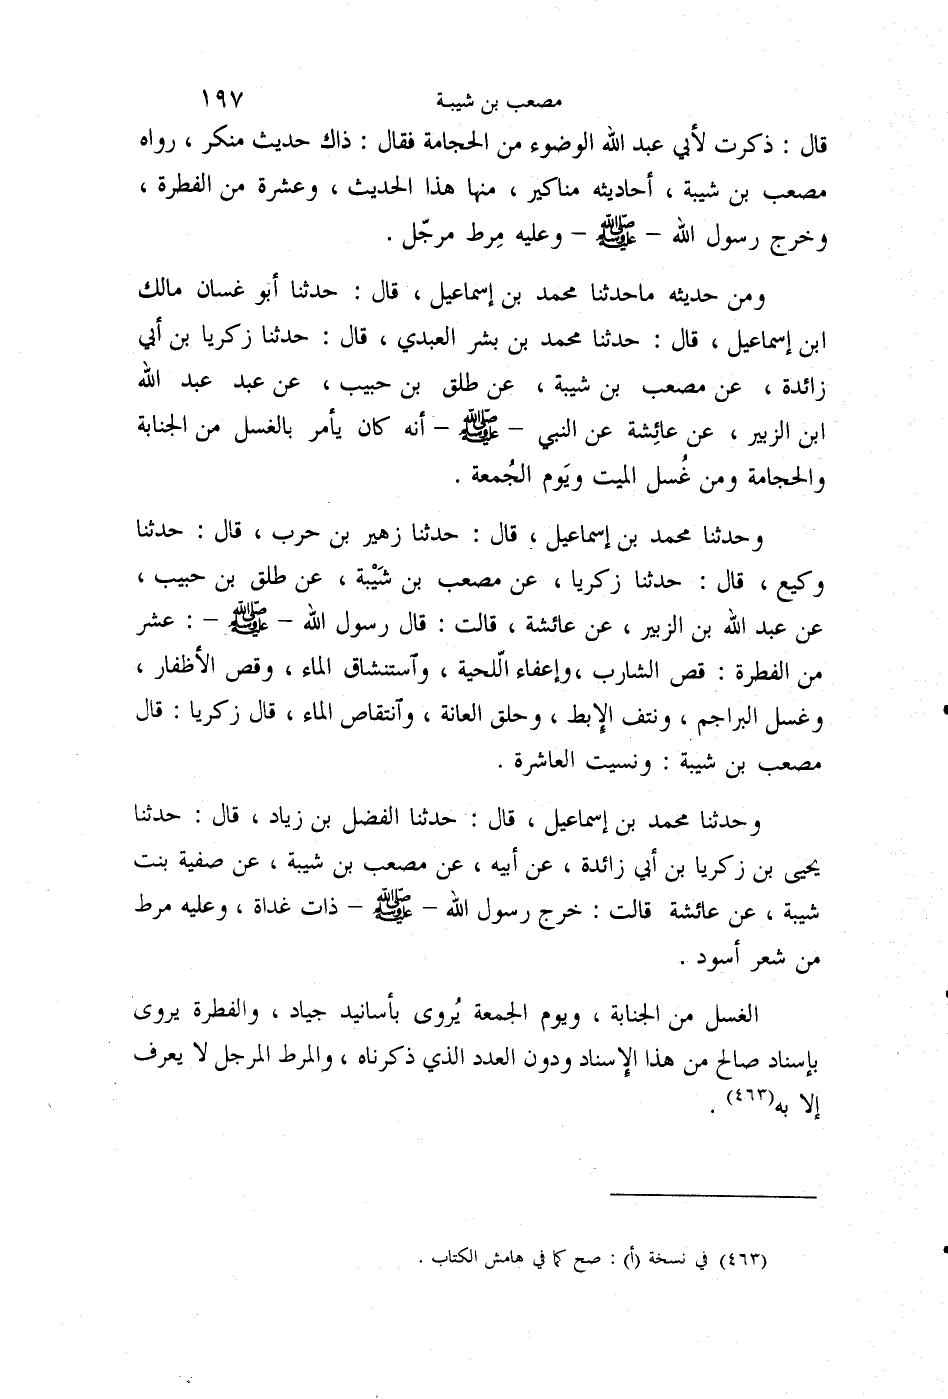 مصعب بن شيبة ١٩٧
قال : ذكرت لأبي عبد الله الوضوء من الحجامة فقال : ذاك حديث منكر ، رواه
مصعب بن شيبة ، أحاديثه مناكير ، منها هذا الحديث ، وعشرة من الفطرة ،
وخرج رسول الله – ﷺ – وعليه مِرط مرجّل .
ومن حديثه ماحدثنا محمد بن إسماعيل ، قال : حدثنا أبو غسان مالك
ابن إسماعيل ، قال : حدثنا محمد بن بشر العبدي ، قال : حدثنا زكريا بن أبي
زائدة ، عن مصعب بن شيبة ، عن طلق بن حبيب ، عن عبد عبد الله
ابن الزبير ، عن عائِشة عن النبي – ﷺ – أنه كان يأمر بالغسل من الجنابة
والحجامة ومن غُسل الميت ويَوم الجُمعة .
وحدثنا محمد بن إسماعيل ، قال : حدثنا زهير بن حرب ، قال : حدثنا
وكيع ، قال : حدثنا زكريا ، عن مصعب بن شَيْبة ، عن طلق بن حبيب ،
عن عبد الله بن الزبير ، عن عائشة ، قالت : قال رسول الله – ﷺ – : عشر
من الفطرة : قص الشارب ،وإعفاء اللّحية ، وآستنشاق الماء ، وقص الأظفار ،
وغسل البراجم ، ونتف الإبط ، وحلق العانة ، وآنتقاص الماء ، قال زكريا : قال
مصعب بن شيبة : ونسيت العاشرة .
وحدثنا محمد بن إسماعيل ، قال : حدثنا الفضل بن زياد ، قال : حدثنا
يحيى بن زكريا بن أبي زائدة ، عن أبيه ، عن مصعب بن شيبة ، عن صفية بنت
شيبة ، عن عائشة قالت : خرج رسول الله – ﷺ – ذات غداة ، وعليه مرط
من شعر أسود .
الغسل من الجنابة ، ويوم الجمعة يُروى بأسانيد جياد ، والفطرة يروى
بإسناد صالح من هذا الإسناد ودون العدد الذي ذكرناه ، والمرط المرجل لا يعرف
إلا به(٤٦٣) .
(٤٦٣) في نسخة (أ) : صح كما في هامش الكتاب .